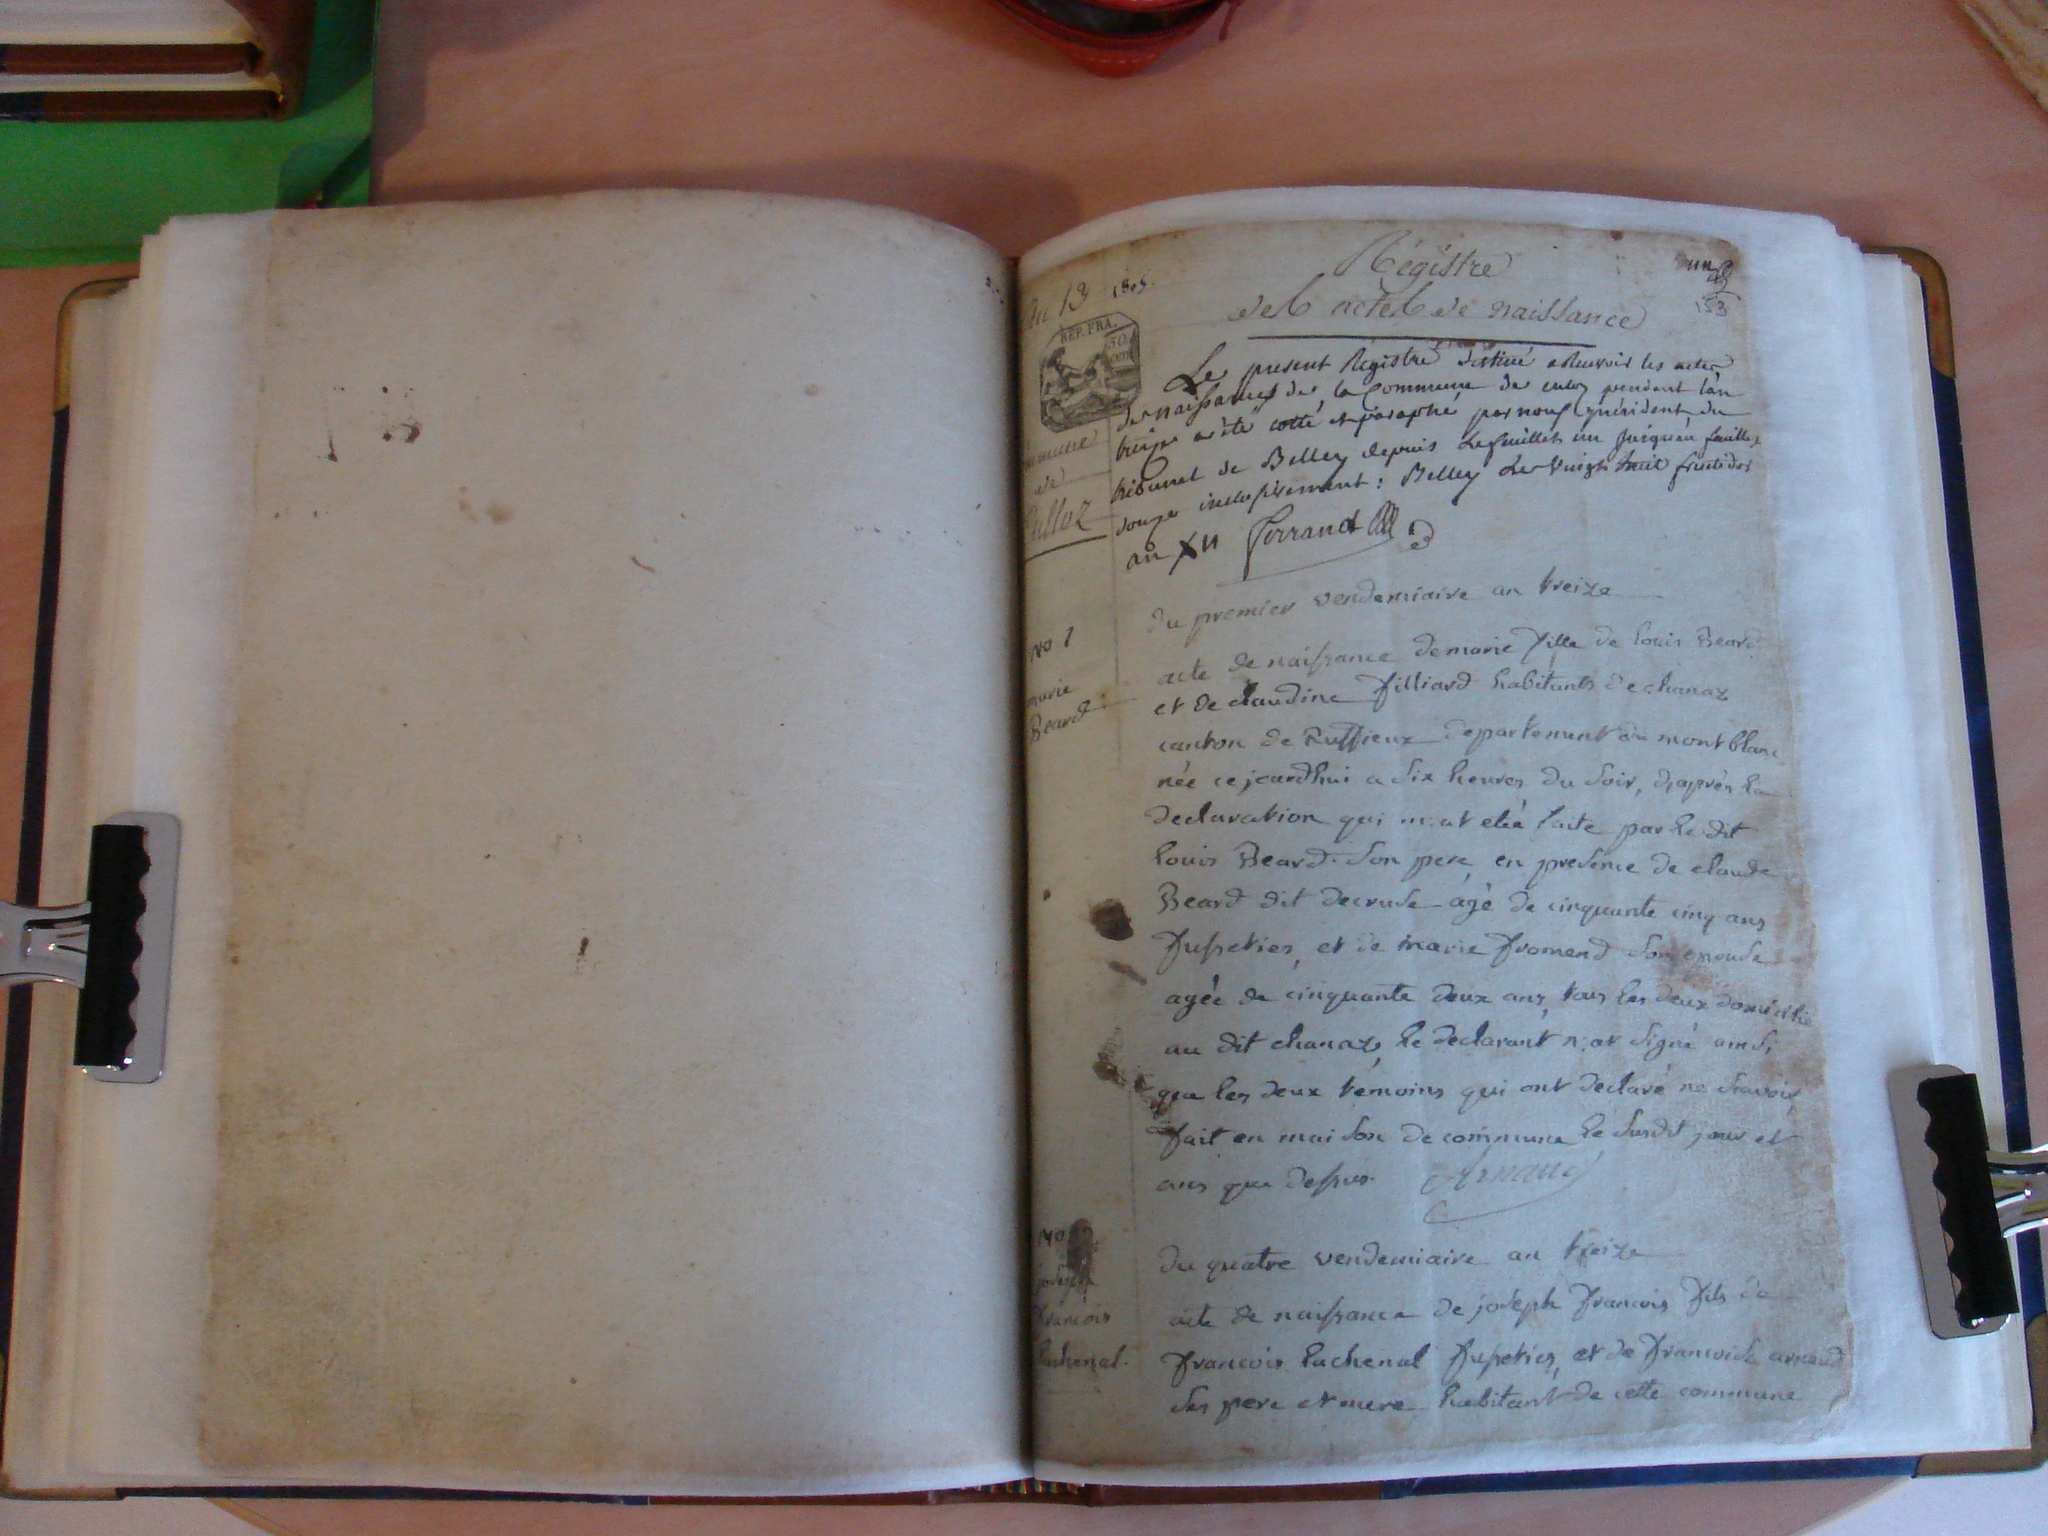 Régistre
des actes de naissance
un
153
an 13 1805.
REP. FRA.
50
Commune
de
Culloz
Le present Régistre destiné a Recevoir les actes
de naissances de la Commune de culoz pendant l'an
treize a été cotté et paraphé par nous président du
tribunal de Belley depuis Le feuillet un jusqu'au feuillet
douze inclusivement : Belley Le vingt huit fructidor
an XII Ferrand
du premier vendemiaire an treize
No 1
marie
Beard
acte de naissance de marie fille de louis Beard
et de claudine filliard habitants de chanaz
canton de Ruffieux departement du mont blanc
née cejourdhui a six heures du soir, d'aprés la
declaration qui m'at eté faite par le dit
louis Beard son pere, en presence de claude
Beard dit decrude agé de cinquante cinq ans
et de marie fromend son epouse
agée de cinquante deux ans, tous les deux domicilie
au dit chanaz, le declarant n'at signé ainsi
que les deux témoins qui ont declaré ne sçavoir,
fait en maison de commune le susdit jour et
ans que dessus. Arnaud
No
joseph
françois
lachenal.
du quatre vendemiaire an treize
acte de naissance de joseph françois fils de
françois lachenal et de françoise arnaud
ses pere et mere habitant de cette commune